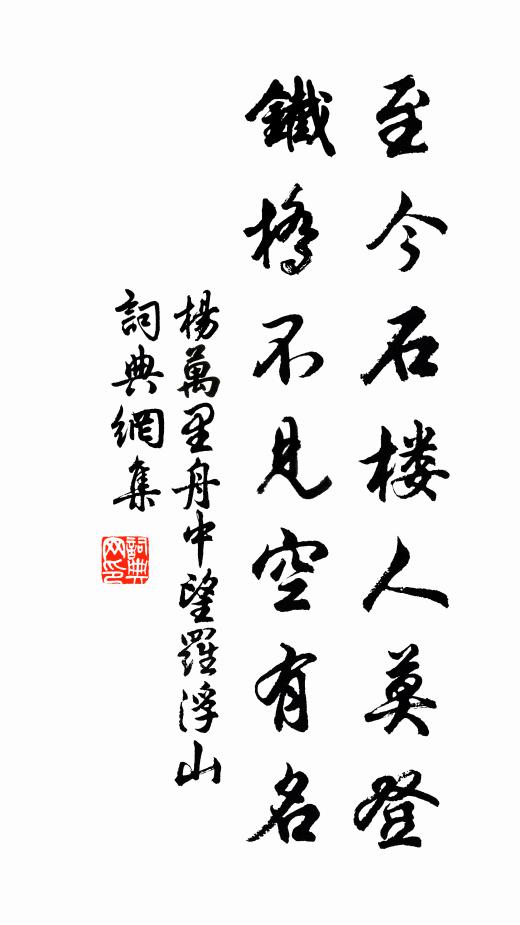 至今石楼人莫登
鐵橋不見空有名
楊萬里舟中望羅浮山
詞典網集
詞典网印